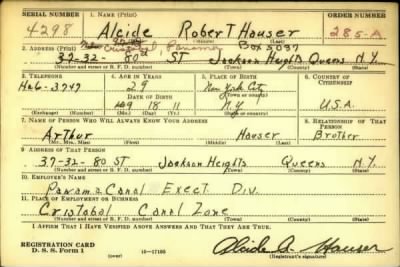 SERIAL NUMBER 1. NAME (Print) ORDER NUMBER
4298 Alcide Robert Hauser 285-A
(First) (Middle) (Last)
Cristobal, Panama Box 5037
2. ADDRESS (Print)
37-32-80th ST Jackson Heights Queens N.Y.
(Number and street or R. F. D. number) (Town) (County) (State)
3. TELEPHONE 4. AGE IN YEARS 5. PLACE OF BIRTH 6. COUNTRY OF CITIZENSHIP
29 New York City
HA6-3747 DATE OF BIRTH (Town or county)
18 11 N.Y. U.S.A.
(Exchange) (No.) (Mo.) (Day) (Yr.) (State or country)
7. NAME OF PERSON WHO WILL ALWAYS KNOW YOUR ADDRESS 8. RELATIONSHIP OF THAT PERSON
Arthur Hauser Brother
(Mr., Mrs., Miss) (First) (Middle) (Last)
9. ADDRESS OF THAT PERSON
37-32-80 ST Jackson Heights Queens N.Y.
(Number and street or R. F. D. number) (Town) (County) (State)
10. EMPLOYER'S NAME
Panama Canal Exect Div.
11. PLACE OF EMPLOYMENT OR BUSINESS
Cristobal Canal Zone
(Number and street or R. F. D. number) (Town) (County) (State)
I AFFIRM THAT I HAVE VERIFIED ABOVE ANSWERS AND THAT THEY ARE TRUE.
REGISTRATION CARD
D. S. S. Form 1 (over) 16-17105 Alcide A. Hauser
(Registrant's signature)